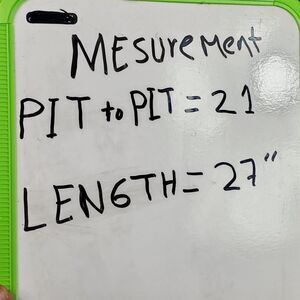 MESurement
PIT to PIT = 21
LENGTH = 27"